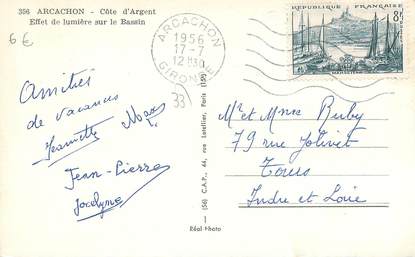 356 ARCACHON - Côte d'Argent
Effet de lumière sur le Bassin
6€
ARCACHON
1956
17-7
12H30
GIRONDE
RÉPUBLIQUE FRANÇAISE
8F
MARSEILLE
33
Amitiés
de vacances
Jeannette Max
Jean-Pierre
Jocelyne
(56) C.A.P., 44, rue Letellier, Paris (15e)
1
Réal-Photo
Mr et Mme Buby
79 rue Jolivet
Tours
Indre et Loire